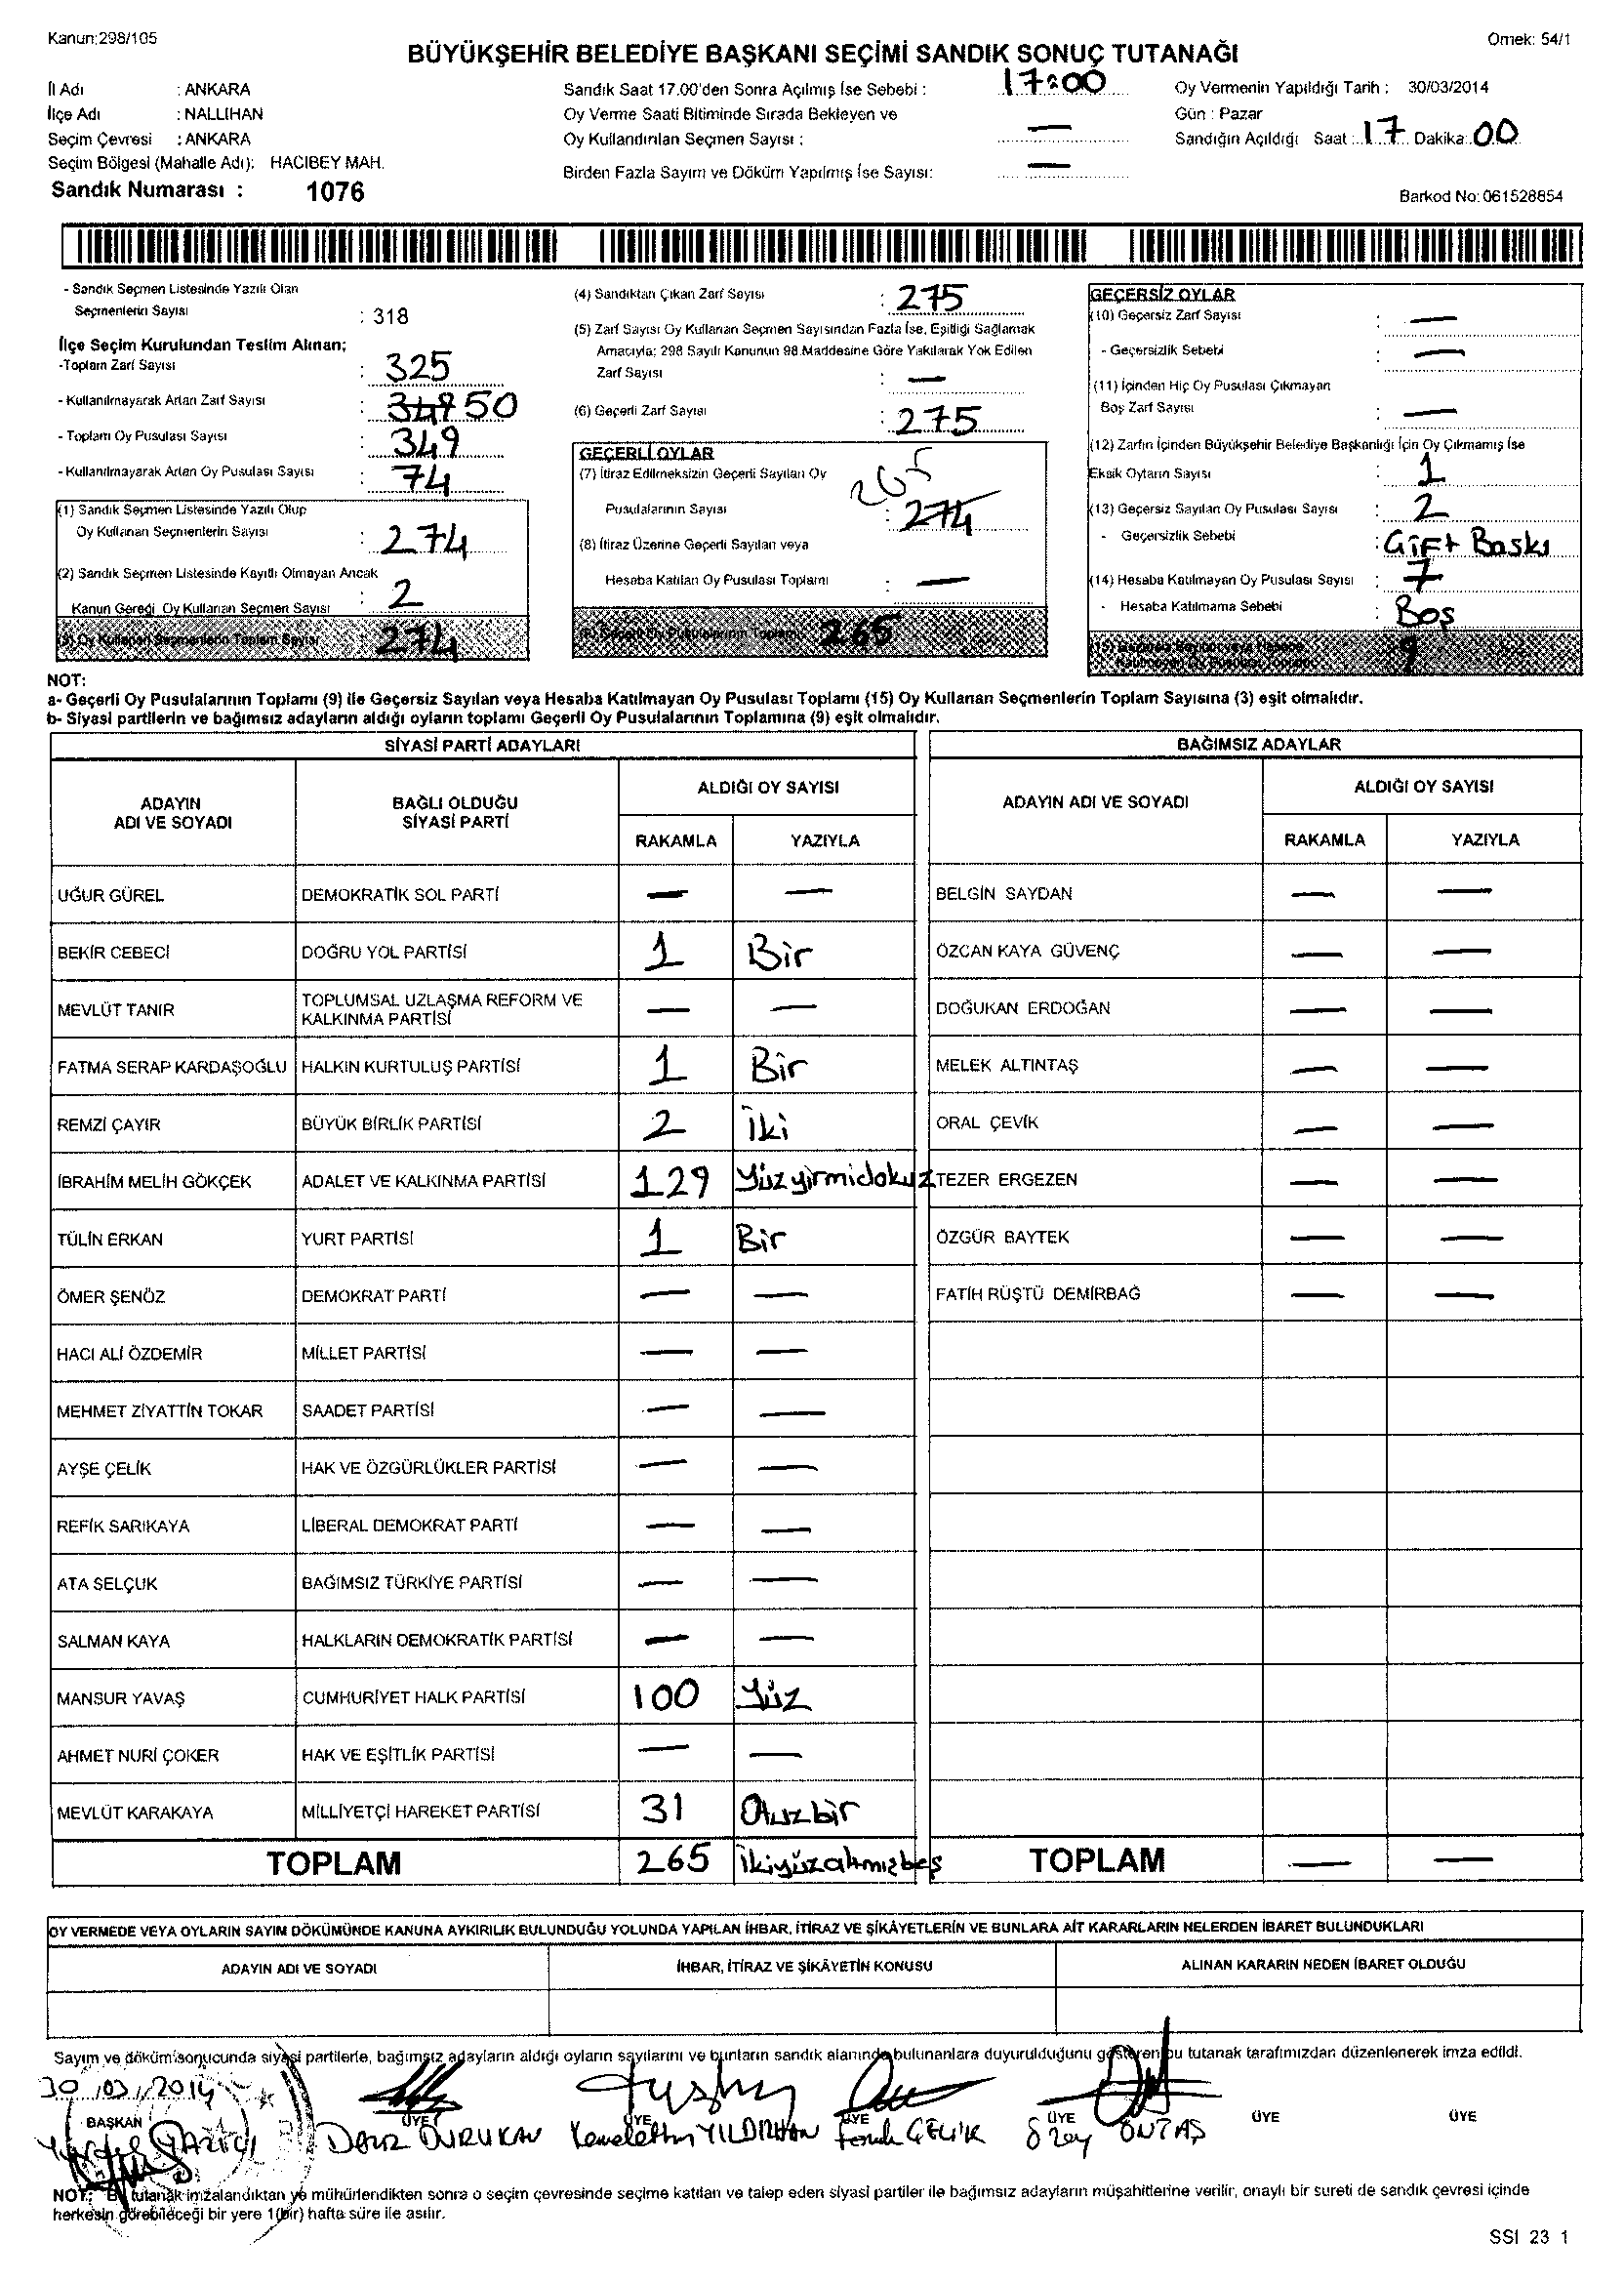 Kanun:298/105
Örnek: 54/1
BÜYÜKŞEHİR BELEDİYE BAŞKANI SEÇİMİ SANDIK SONUÇ TUTANAĞI
İl Adı : ANKARA
İlçe Adı : NALLIHAN
Seçim Çevresi : ANKARA
Seçim Bölgesi (Mahalle Adı): HACIBEY MAH.
Sandık Numarası : 1076
Sandık Saat 17.00'den Sonra Açılmış İse Sebebi : 17:00
Oy Verme Saati Bitiminde Sırada Bekleyen ve
Oy Kullandırılan Seçmen Sayısı : —
Birden Fazla Sayım ve Döküm Yapılmış İse Sayısı: —
Oy Vermenin Yapıldığı Tarih : 30/03/2014
Gün : Pazar
Sandığın Açıldığı Saat : 17 Dakika: 00
Barkod No: 061528854
- Sandık Seçmen Listesinde Yazılı Olan
Seçmenlerin Sayısı : 318
İlçe Seçim Kurulundan Teslim Alınan;
-Toplam Zarf Sayısı : 325
- Kullanılmayarak Artan Zarf Sayısı : 50
- Toplam Oy Pusulası Sayısı : 349
- Kullanılmayarak Artan Oy Pusulası Sayısı : 74
(1) Sandık Seçmen Listesinde Yazılı Olup
Oy Kullanan Seçmenlerin Sayısı : 274
(2) Sandık Seçmen Listesinde Kayıtlı Olmayan Ancak
Kanun Gereği Oy Kullanan Seçmen Sayısı : 2
(3) Oy Kullanan Seçmenlerin Toplam Sayısı 274
(4) Sandıktan Çıkan Zarf Sayısı : 275
(5) Zarf Sayısı Oy Kullanan Seçmen Sayısından Fazla İse, Eşitliği Sağlamak
Amacıyla; 298 Sayılı Kanunun 98.Maddesine Göre Yakılarak Yok Edilen
Zarf Sayısı : —
(6) Geçerli Zarf Sayısı : 275
GEÇERLİ OYLAR
(7) İtiraz Edilmeksizin Geçerli Sayılan Oy 265
Pusulalarının Sayısı : 274
(8) İtiraz Üzerine Geçerli Sayılan veya
Hesaba Katılan Oy Pusulası Toplamı : —
(9) Geçerli Oy Pusulalarının Toplamı 265
GEÇERSİZ OYLAR
(10) Geçersiz Zarf Sayısı : —
- Geçersizlik Sebebi : —
(11) İçinden Hiç Oy Pusulası Çıkmayan
Boş Zarf Sayısı : —
(12) Zarfın İçinden Büyükşehir Belediye Başkanlığı İçin Oy Çıkmamış İse
Eksik Oyların Sayısı : 1
(13) Geçersiz Sayılan Oy Pusulası Sayısı : 2
- Geçersizlik Sebebi : Çift Baskı
(14) Hesaba Katılmayan Oy Pusulası Sayısı : 7
- Hesaba Katılmama Sebebi : Boş
(15) Geçersiz Sayılan veya Hesaba
Katılmayan Oy Pusulası Toplamı 9
NOT:
a- Geçerli Oy Pusulalarının Toplamı (9) ile Geçersiz Sayılan veya Hesaba Katılmayan Oy Pusulası Toplamı (15) Oy Kullanan Seçmenlerin Toplam Sayısına (3) eşit olmalıdır.
b- Siyasi partilerin ve bağımsız adayların aldığı oyların toplamı Geçerli Oy Pusulalarının Toplamına (9) eşit olmalıdır.
SİYASİ PARTİ ADAYLARI
BAĞIMSIZ ADAYLAR
ADAYIN ADI VE SOYADI
BAĞLI OLDUĞU SİYASİ PARTİ
ALDIĞI OY SAYISI
RAKAMLA YAZIYLA
ADAYIN ADI VE SOYADI
ALDIĞI OY SAYISI
RAKAMLA YAZIYLA
UĞUR GÜREL DEMOKRATİK SOL PARTİ — — BELGİN SAYDAN — —
BEKİR CEBECİ DOĞRU YOL PARTİSİ 1 Bir ÖZCAN KAYA GÜVENÇ — —
MEVLÜT TANIR TOPLUMSAL UZLAŞMA REFORM VE KALKINMA PARTİSİ — — DOĞUKAN ERDOĞAN — —
FATMA SERAP KARDAŞOĞLU HALKIN KURTULUŞ PARTİSİ 1 Bir MELEK ALTINTAŞ — —
REMZİ ÇAYIR BÜYÜK BİRLİK PARTİSİ 2 İki ORAL ÇEVİK — —
İBRAHİM MELİH GÖKÇEK ADALET VE KALKINMA PARTİSİ 129 Yüzyirmidokuz TEZER ERGEZEN — —
TÜLİN ERKAN YURT PARTİSİ 1 Bir ÖZGÜR BAYTEK — —
ÖMER ŞENÖZ DEMOKRAT PARTİ — — FATİH RÜŞTÜ DEMİRBAĞ — —
HACI ALİ ÖZDEMİR MİLLET PARTİSİ — —
MEHMET ZİYATTİN TOKAR SAADET PARTİSİ — —
AYŞE ÇELİK HAK VE ÖZGÜRLÜKLER PARTİSİ — —
REFİK SARIKAYA LİBERAL DEMOKRAT PARTİ — —
ATA SELÇUK BAĞIMSIZ TÜRKİYE PARTİSİ — —
SALMAN KAYA HALKLARIN DEMOKRATİK PARTİSİ — —
MANSUR YAVAŞ CUMHURİYET HALK PARTİSİ 100 Yüz
AHMET NURİ ÇOKER HAK VE EŞİTLİK PARTİSİ — —
MEVLÜT KARAKAYA MİLLİYETÇİ HAREKET PARTİSİ 31 Otuzbir
TOPLAM 265 İkiyüzaltmışbeş TOPLAM — —
OY VERMEDE VEYA OYLARIN SAYIM DÖKÜMÜNDE KANUNA AYKIRILIK BULUNDUĞU YOLUNDA YAPILAN İHBAR, İTİRAZ VE ŞİKÂYETLERİN VE BUNLARA AİT KARARLARIN NELERDEN İBARET BULUNDUKLARI
ADAYIN ADI VE SOYADI İHBAR, İTİRAZ VE ŞİKÂYETİN KONUSU ALINAN KARARIN NEDEN İBARET OLDUĞU
Sayım ve döküm sonucunda siyasi partilerle, bağımsız adayların aldığı oyların sayılarını ve bunların sandık alanında bulunanlara duyurulduğunu gösteren bu tutanak tarafımızdan düzenlenerek imza edildi.
30/03/2014
BAŞKAN ÜYE ÜYE ÜYE ÜYE ÜYE ÜYE
YAZICI Deniz DURUKAN Kemalettin YILDIRHAN ÇELİK Özey ÖNTAŞ
NOT: Bu tutanak imzalandıktan ve mühürlendikten sonra o seçim çevresinde seçime katılan ve talep eden siyasi partiler ile bağımsız adayların müşahitlerine verilir, onaylı bir sureti de sandık çevresi içinde
herkesin görebileceği bir yere 1(bir) hafta süre ile asılır.
SSI 23 1